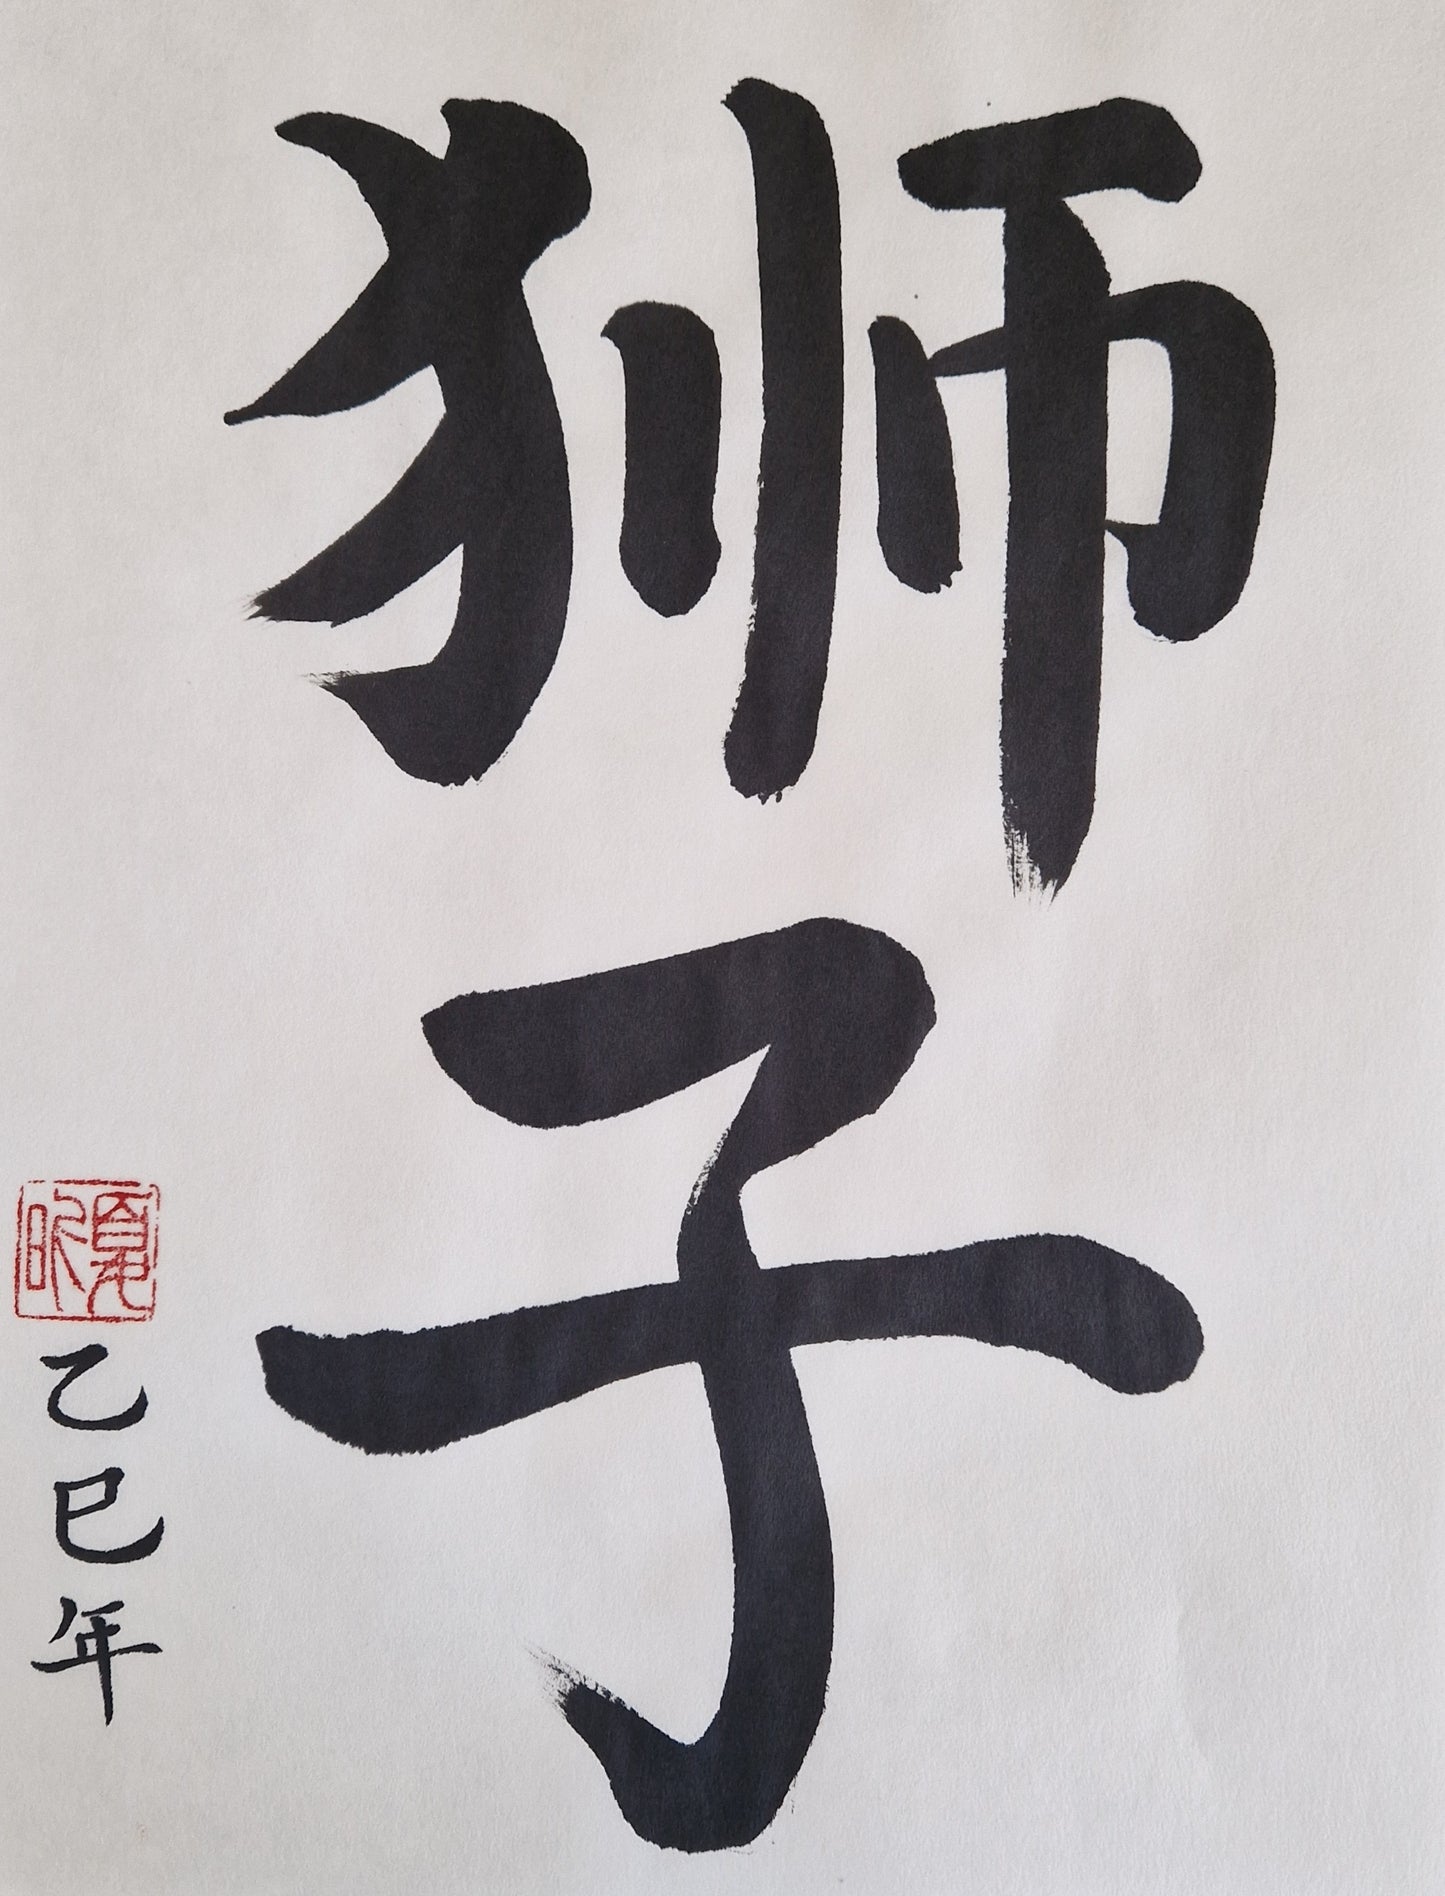 狮子
乙巳年